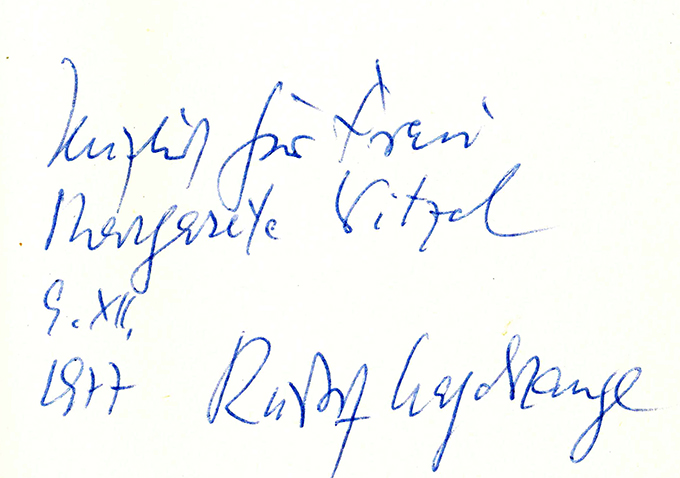 Herzlich für Frau
Margarete
9. XII.
1977 Rudolf Hagelstange